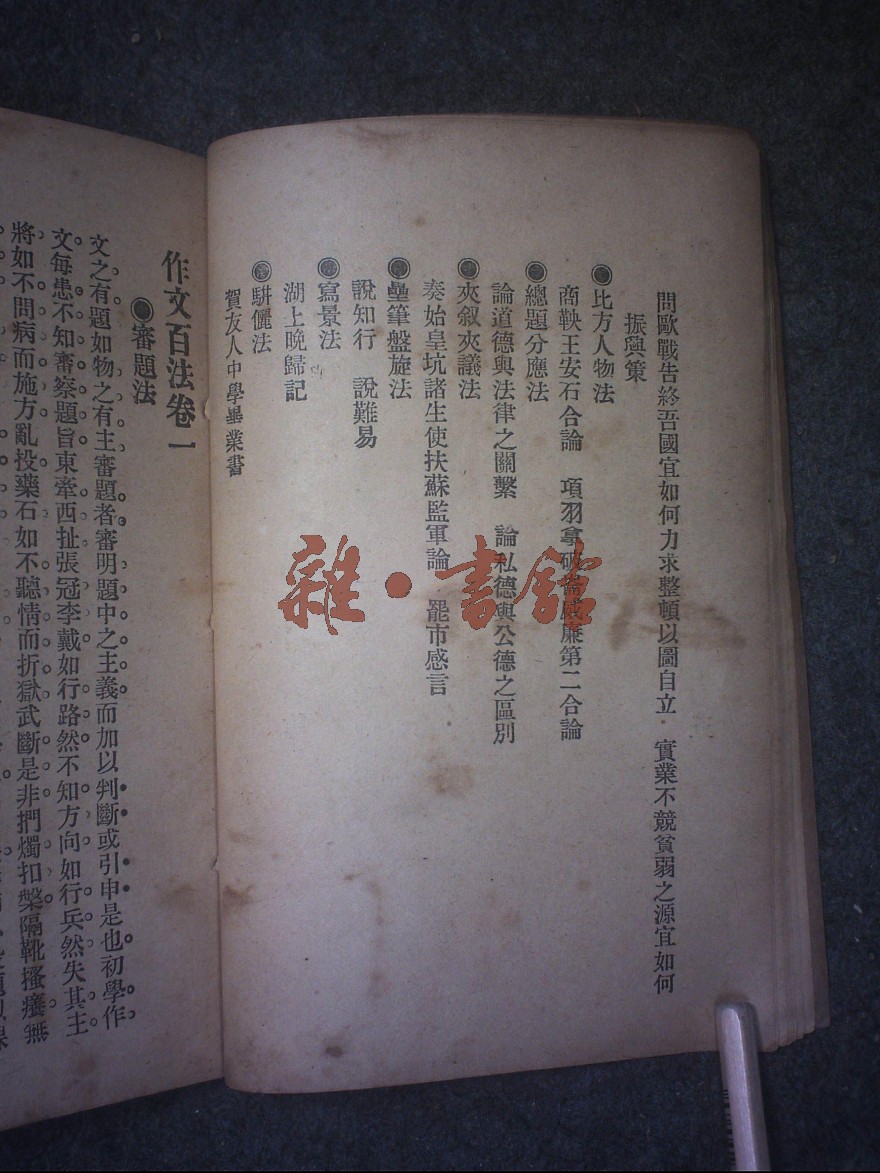 問歐戰告終吾國宜如何力求整頓以圖自立 實業不競貧弱之源宜如何
振興策
●比方人物法
商鞅王安石合論 項羽拿破崙威廉第二合論
●總題分應法
論道德與法律之關繫 論私德與公德之區別
●夾叙夾議法
秦始皇坑諸生使扶蘇監軍論 罷市感言
●壘筆盤旋法
說知行 說難易
●寫景法
湖上晚歸記
●駢儷法
賀友人中學畢業書
作文百法卷一
●審題法
文之有題如物之有主審題者審明題中之主義而加以判斷或引申是也初學作
文每患不知審察題旨東牽西扯張冠李戴如行路然不知方向如行兵然失其主
將如不問病而施方亂投藥石如不聽情而折獄武斷是非捫燭扣槃隔靴搔癢無
雜·書館